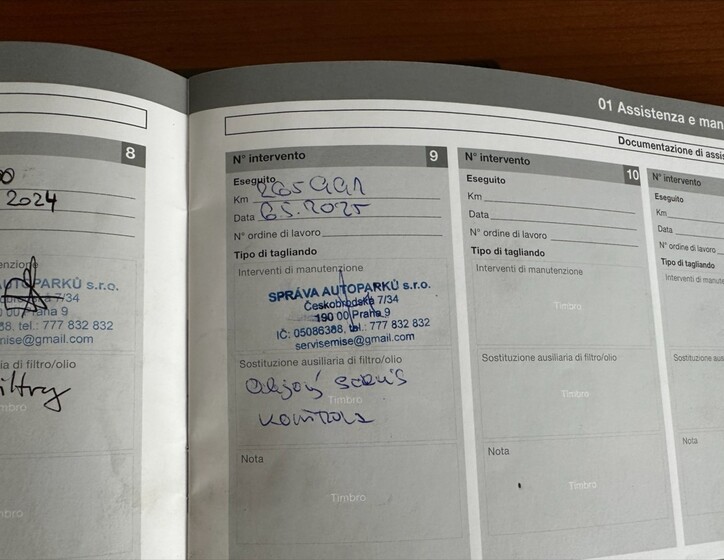 01 Assistenza e man
Documentazione di assis
8
2024
enzione
AUTOPARKŮ s.r.o.
7/34
00 Praha 9
88, tel.: 777 832 832
mise@gmail.com
ria di filtro/olio
iltry
Timbro
mbro
N° intervento 9
Eseguito
Km 265991
Data 6.5.2025
N° ordine di lavoro
Tipo di tagliando
Interventi di manutenzione
SPRÁVA AUTOPARKŮ s.r.o.
Českobrodská 7/34
190 00 Praha 9
IČ: 05086388, tel.: 777 832 832
servisemise@gmail.com
Sostituzione ausiliaria di filtro/olio
Olejový servis
Timbro
kontrola
Nota
Timbro
N° intervento 10
Eseguito
Km
Data
N° ordine di lavoro
Tipo di tagliando
Interventi di manutenzione
Timbro
Sostituzione ausiliaria di filtro/olio
Timbro
Nota
Timbro
N° intervento
Eseguito
Km
Data
N° ordine di lavoro
Tipo di tagliando
Interventi di manute
Sostituzione aus
Nota